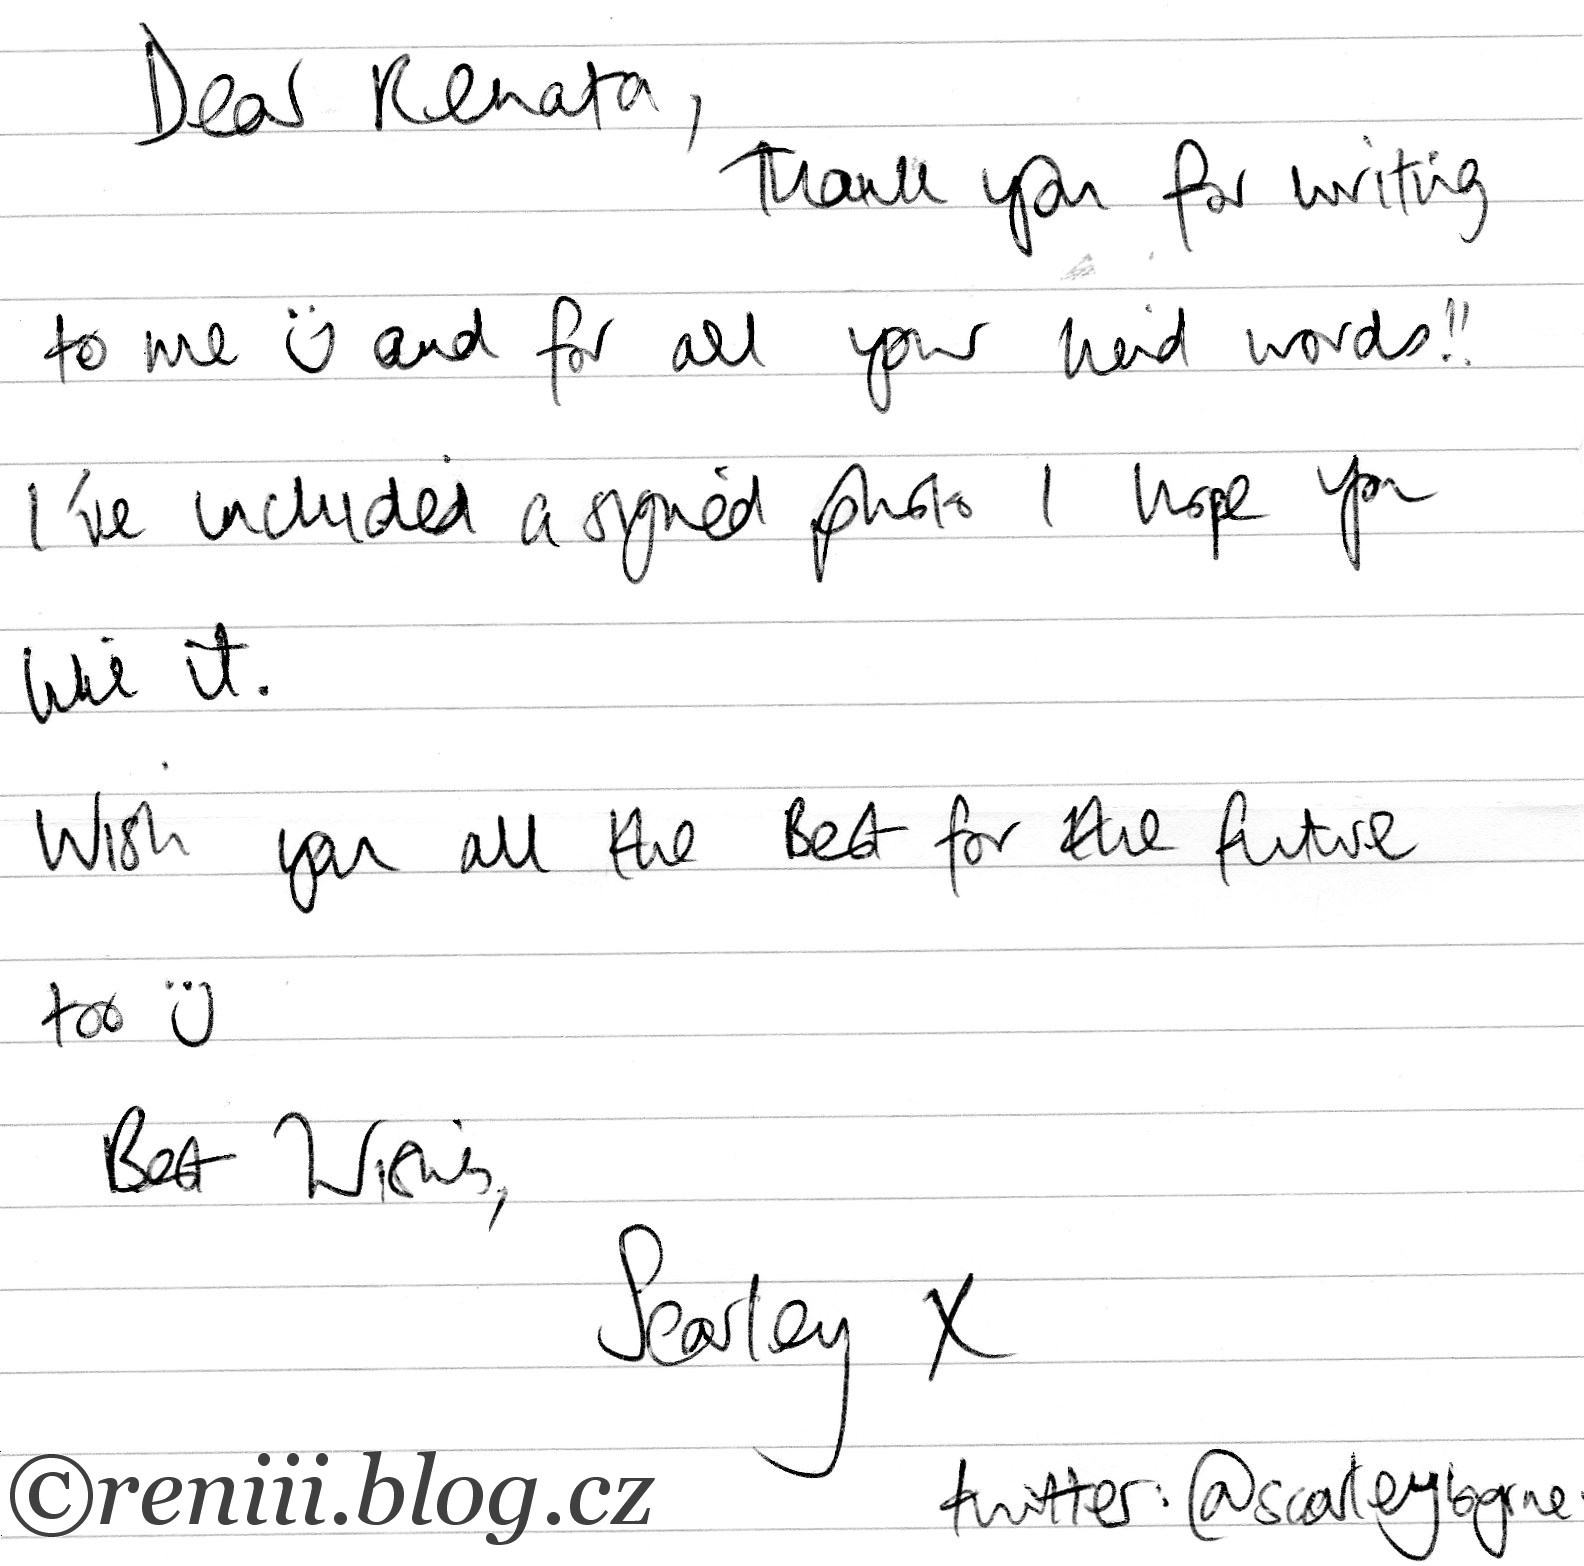 Dear Renata,
Thank you for writing
to me ü and for all your kind words!!
I've included a signed photo I hope you
like it.
Wish you all the Best for the future
too ü
Best Wishes,
Scarley X
twitter: @scarleybyrne.
©reniii.blog.cz